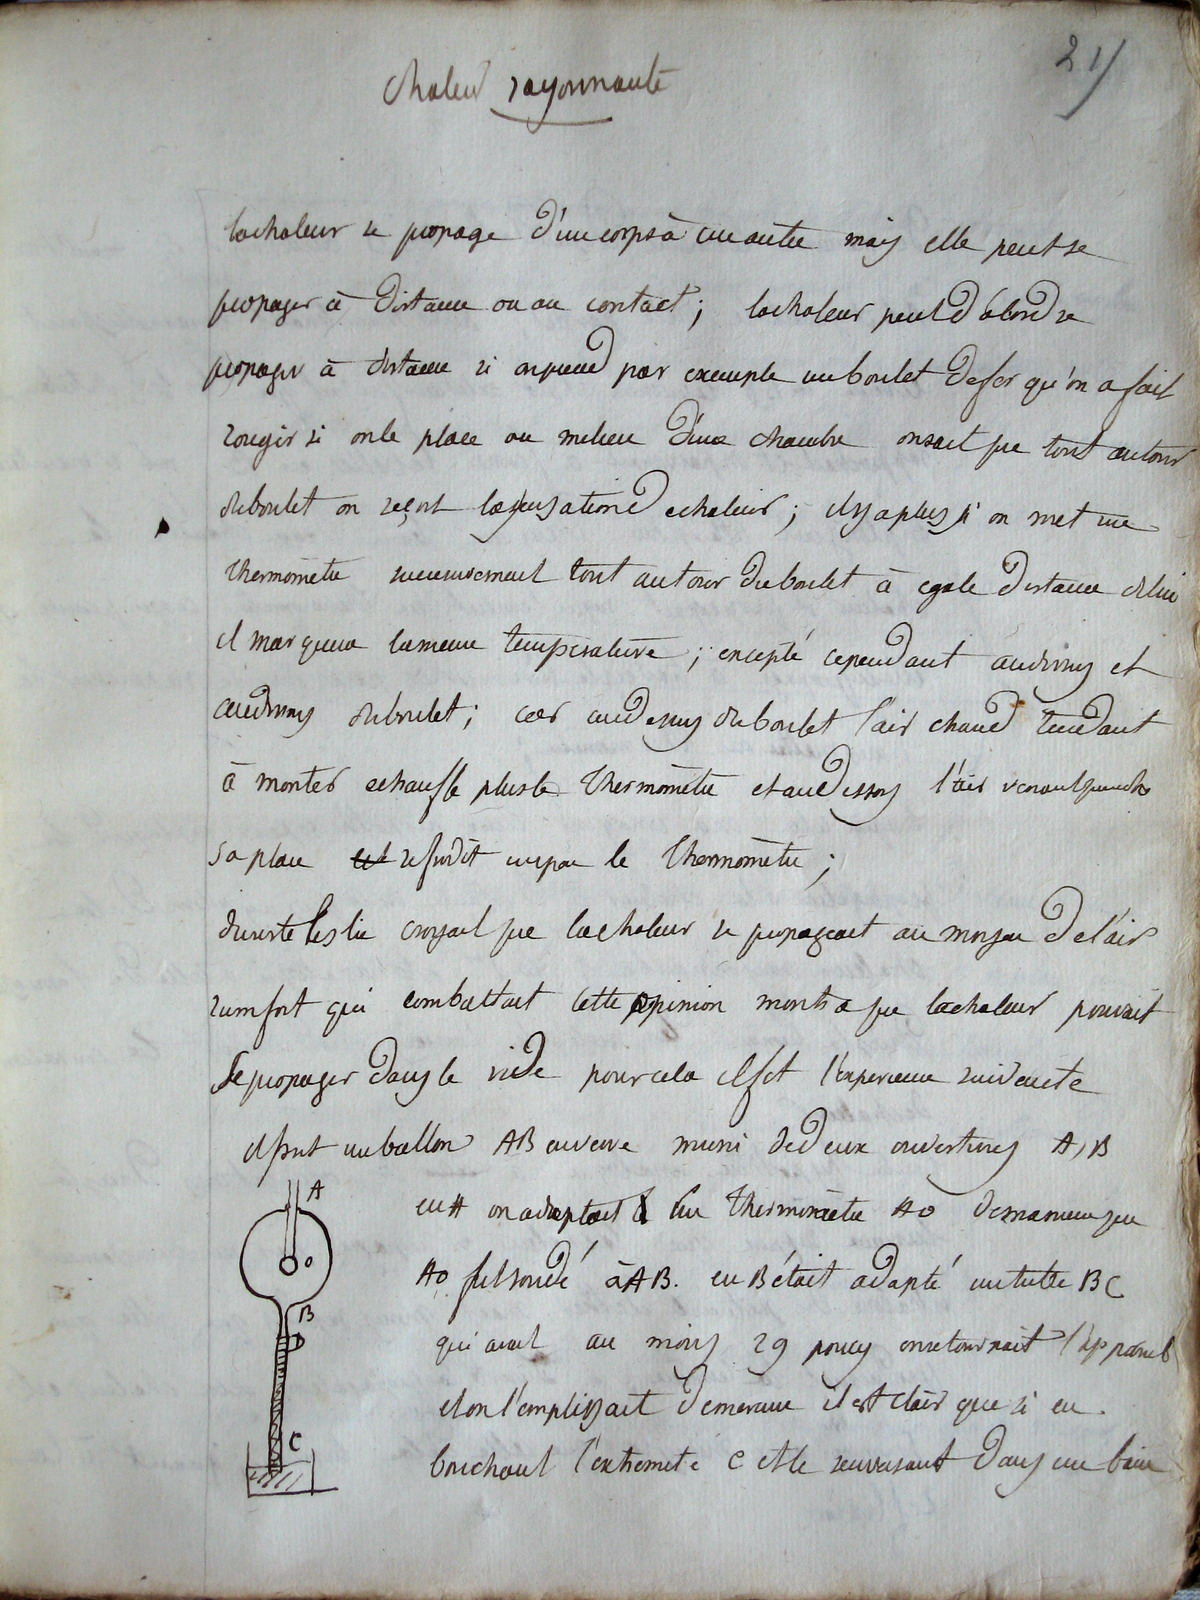 21
Chaleur rayonnante
la chaleur se propage d'un corps à un autre mais elle peut se
propager à distance ou au contact; la chaleur peut d'abord se
propager à distance si on prend par exemple un boulet de fer qu'on a fait
rougir si on le place au milieu d'une chambre on sait que tout autour
du boulet on reçoit la sensation de chaleur; il y a plus si on met un
thermomètre successivement tout autour du boulet à egale distance de lui
il marquera la meme temperature; excepté cependant au dessus et
au dessous du boulet; car au dessus du boulet l'air chaud tendant
à monter echauffe plus le thermomètre et au dessous l'air venant prendre
sa place refroidit un peu le thermomètre;
du reste Leslie croyait que la chaleur se propageait au moyen de l'air
rumfort qui combattait cette opinion montra que la chaleur pouvait
se propager dans le vide pour cela il fit l'experience suivante
il prit un ballon AB en verre muni de deux ouvertures A, B
en A on adaptait un thermomètre AO de maniere que
AO fut soudé à AB. en B était adapté un tube BC
qui avait au moins 29 pouces on retournait l'appareil
et on l'emplissait de mercure il est clair que si en
bouchant l'extremité C et le renversant dans un bain
A
o
B
D
C